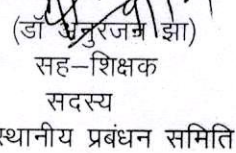 (डॉ अनुरजन झा)
सह-शिक्षक
सदस्य
स्थानीय प्रबंधन समिति